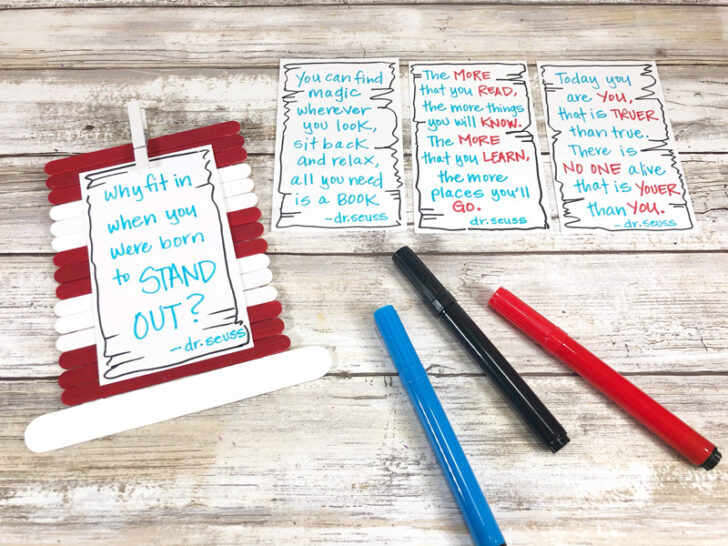 why fit in
when you
were born
to STAND
OUT?
- dr. seuss
You can find
magic
wherever
you look,
sit back
and relax,
all you need
is a BOOK
- dr. seuss
The MORE
that you READ,
the more things
you will KNOW.
The MORE
that you LEARN,
the more
places you'll
GO.
dr. seuss
Today you
are YOU,
that is TRUER
than true.
There is
NO ONE alive
that is YOUER
than YOU.
- dr. seuss